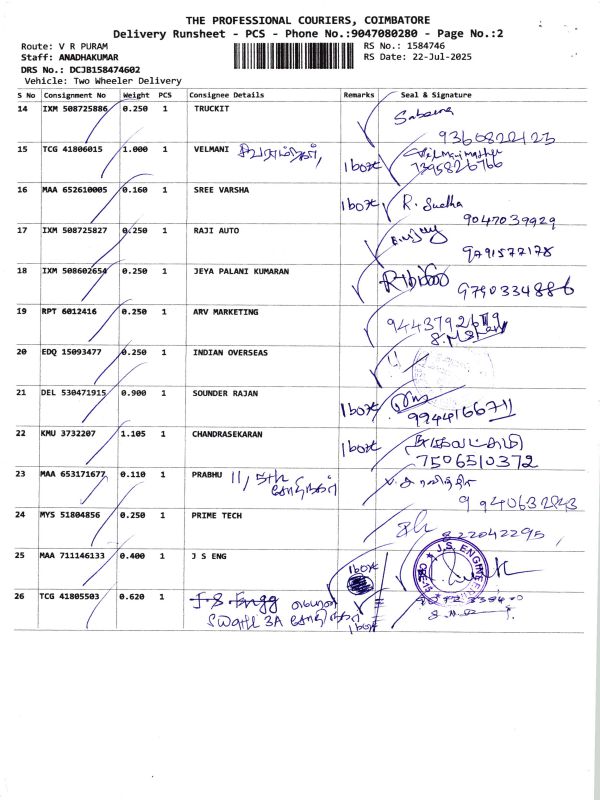 THE PROFESSIONAL COURIERS, COIMBATORE
Delivery Runsheet - PCS - Phone No.:9047080280 - Page No.:2
Route: V R PURAM RS No.: 1584746
Staff: ANADHAKUMAR RS Date: 22-Jul-2025
DRS No.: DCJB158474602
Vehicle: Two Wheeler Delivery
S No Consignment No Weight PCS Consignee Details Remarks Seal & Signature
14 IXM 508725886 0.250 1 TRUCKIT Sabeena
9360822123
15 TCG 41806015 1.000 1 VELMANI 1 box
7395826766
16 MAA 652610005 0.160 1 SREE VARSHA 1 box R. Sudha
9047039929
17 IXM 508725827 0.250 1 RAJI AUTO
9791577178
18 IXM 508602654 0.250 1 JEYA PALANI KUMARAN
9790334886
19 RPT 6012416 0.250 1 ARV MARKETING
20 EDQ 15093477 0.250 1 INDIAN OVERSEAS
21 DEL 530471915 0.900 1 SOUNDER RAJAN 1 box
9944166711
22 KMU 3732207 1.105 1 CHANDRASEKARAN 1 box
7506510372
23 MAA 653171677 0.110 1 PRABHU 11, 5th
24 MYS 51804856 0.250 1 PRIME TECH
822042295
25 MAA 711146133 0.400 1 J S ENG 1 box J.S. ENGINEERING CBE-15
26 TCG 41805503 0.620 1 J.S. Engg
3A 1 box